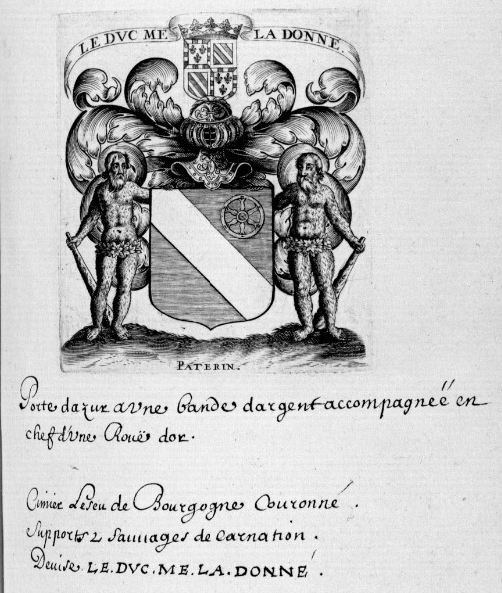 LE DVC ME LA DONNE.
PATERIN.
Porte dazur a vne bande dargent accompagneë en
chef dvne Rouë dor.
Cimier Lescu de Bourgogne Couronné.
Supports 2 Sauuages de Carnation.
Deuise LE.DVC.ME.LA.DONNÉ.